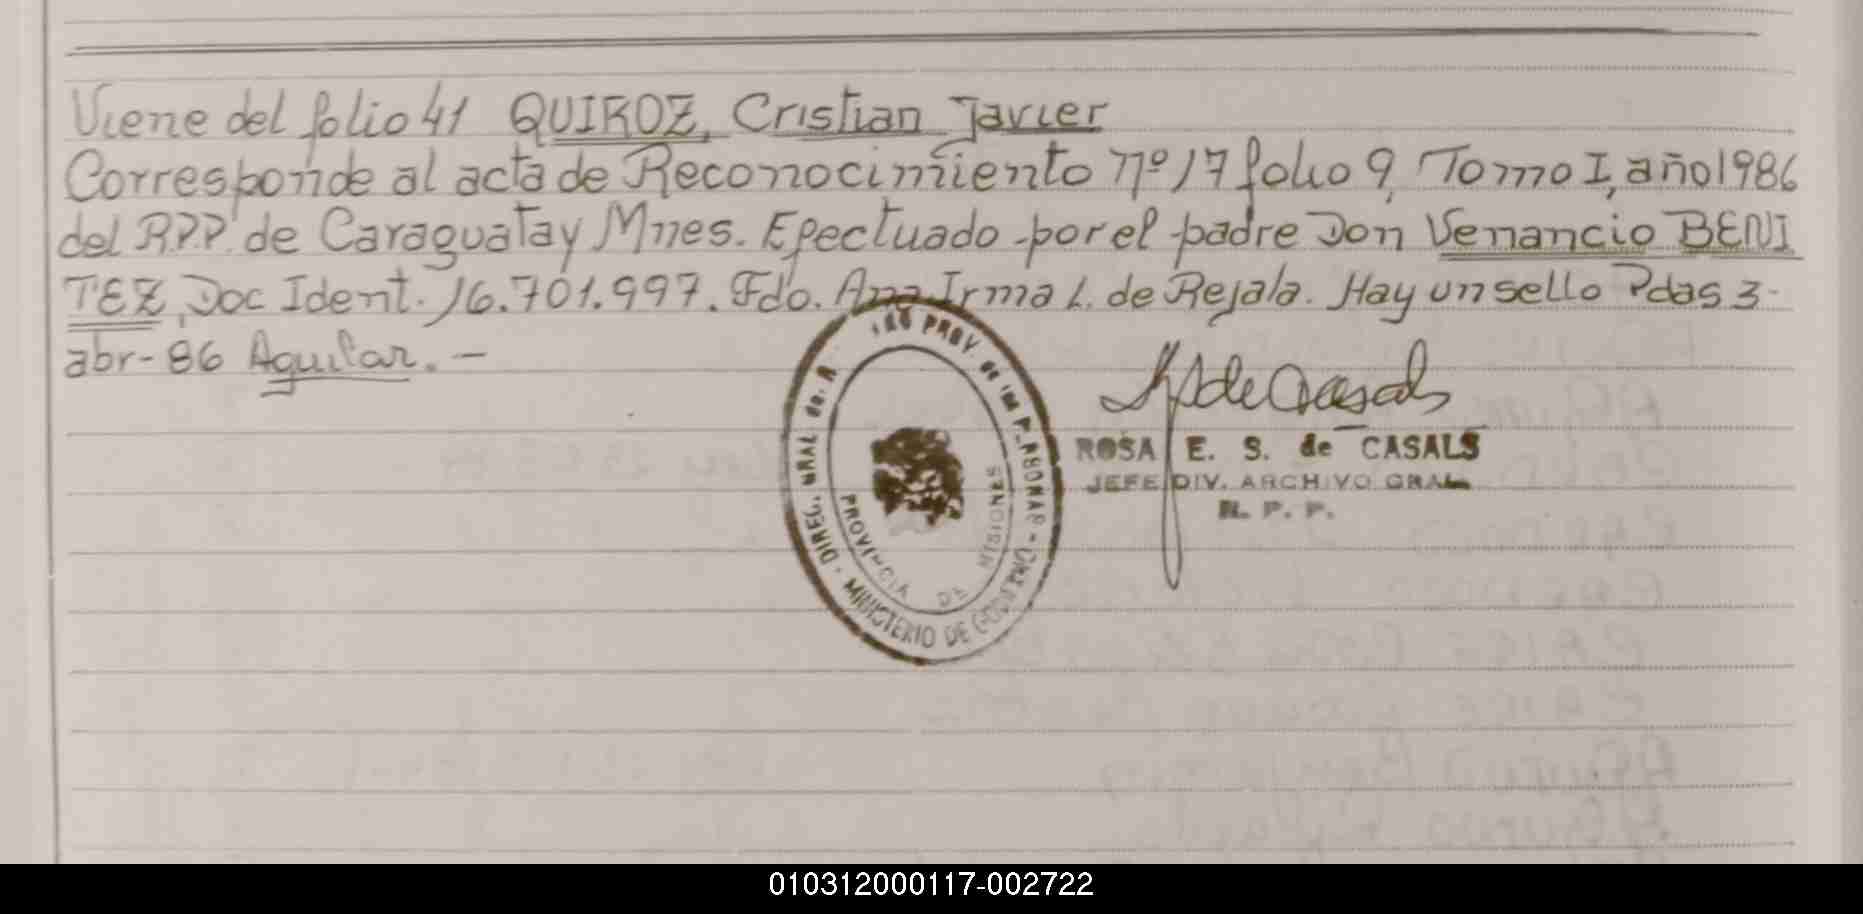 Viene del folio 41 QUIROZ, Cristian Javier
Corresponde al acta de Reconocimiento nº 17 folio 9, Tomo I, año 1986
del R.P.P. de Caraguatay Mnes. Efectuado por el padre Don Venancio BENI
TEZ, Doc Ident. 16.701.997. Fdo. Ana Irma L. de Rejala. Hay un sello Pdas 3-
abr-86 Aguilar.-
PROV. de las
DIREC. GRAL de
MINISTERIO DE GOBIERNO
PROVINCIA DE MISIONES
de Casals
ROSA E. S. de CASALS
JEFE DIV. ARCHIVO GRAL
R. P. P.
010312000117-002722